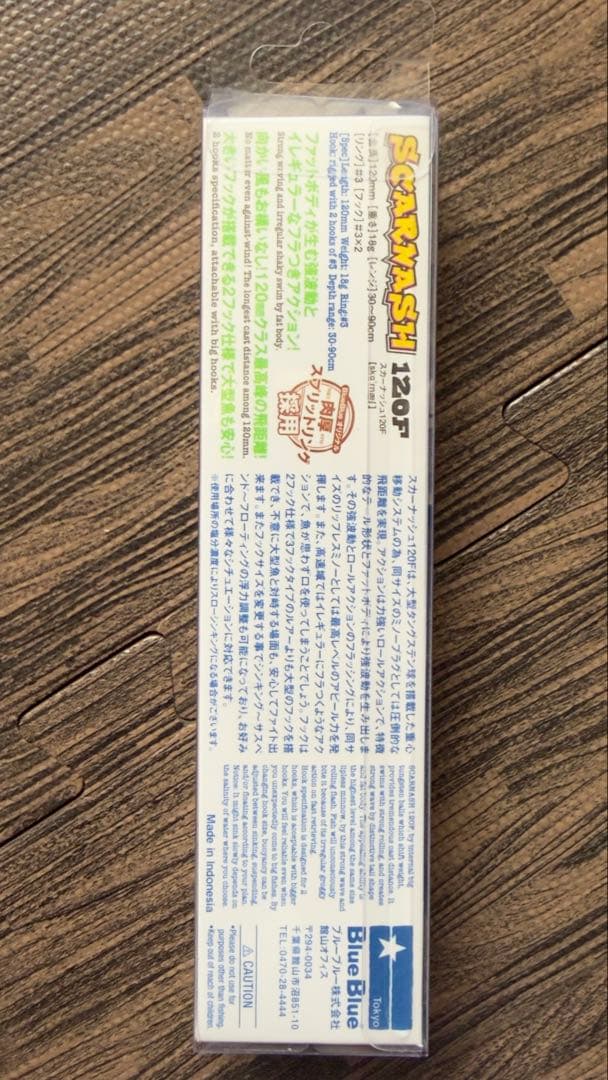 SCARNASH 120F
スカーナッシュ120F
[skaːrnæʃ]
[全長]120mm [重さ]18g [レンジ]30〜90cm
[リング]#3 [フック]#3×2
[Spec]Length: 120mm Weight: 18g Ring:#3
Hook: rigged with 2 hooks of #3 Depth range: 30-90cm
ファットボディが生む強波動と
イレギュラーなフラつきアクション!
Strong waving and irregular shaky swim by fat body.
向かい風もお構いなし!120mmクラス最高峰の飛距離!
No matter even against wind! The longest cast distance among 120mm.
大きいフックが搭載できる2フック仕様で大型魚も安心!
2 hooks specification, attachable with big hooks.
肉厚
スプリットリング
採用
スカーナッシュ120Fは、大型タングステン球を搭載した重心
移動システムの為、同サイズのミノープラグとしては圧倒的な
飛距離を実現。アクションは力強いロールアクションで、特徴
的なテール形状とファットボディにより強波動を生み出しま
す。その強波動とロールアクションのフラッシングにより、同サ
イズのリップレスミノーとしては最高レベルのアピール力を発
揮します。また、高速域ではイレギュラーにフラつくようなアク
ションで、魚が思わず口を使ってしまうことでしょう。フックは
2フック仕様で3フックタイプのルアーよりも大型のフックを搭
載でき、不意に大型魚と対峙する場面も、安心してファイト出
来ます。またフックサイズを変更する事でシンキング〜サスペ
ンド〜フローティングの浮力調整も可能になっており、お好み
に合わせて様々なシチュエーションに対応できます。
※使用場所の塩分濃度によりスローシンキングになる場合がございます。
SCARNASH 120F, by internal big
tungsten balls which shift weight,
provides tremendous cast distance. It
swims with strong rolling, and creates
strong wave by distinctive tail shape
and fat body. The appealing ability is
the highest level among the same size
lipless minnow, by this strong wave and
rolling flash. Fish will unconsciously
bite it because of its irregular groggy
action on fast retrieving.
Hook specification is designed for 2
hooks, which is acceptable with bigger
hooks. You will feel reliable even when
you unexpectedly come to big fishes. By
changing hook size, buoyancy can be
adjusted between sinking, suspending
and/or floating according to your plan.
Notice: It might sink slowly depends on
the salinity of water where you choose.
Made in Indonesia
Tokyo
BlueBlue
ブルーブルー株式会社
館山オフィス
〒294-0034
千葉県館山市沼851-10
TEL:0470-28-4444
⚠ CAUTION
•Please do not use for
purposes other than fishing.
•Keep out of reach of children.